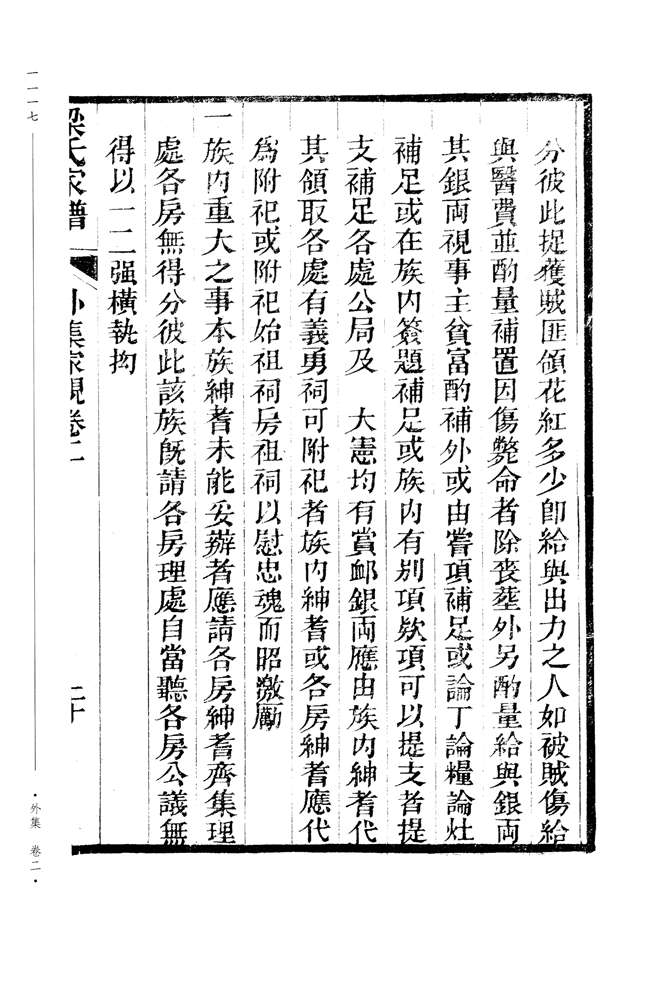 分彼此捉獲賊匪領花紅多少卽給與出力之人如被賊傷給
與醫費並酌量補置因傷斃命者除喪塟外另酌量給與銀両
其銀両視事主貧富酌補外或由嘗項補足或論丁論糧論灶
補足或在族內簽題補足或族內有別項欵項可以提支者提
支補足各處公局及　大憲均有賞卹銀両應由族內紳耆代
其領取各處有義勇祠可附祀者族內紳耆或各房紳耆應代
爲附祀或附祀始祖祠房祖祠以慰忠魂而昭激勵
一族內重大之事本族紳耆未能妥辦者應請各房紳耆齊集理
處各房無得分彼此該族旣請各房理處自當聽各房公議無
得以一二强橫執拗
梁氏家譜　外集家規卷二　二十
一一一七
・外集　卷二・